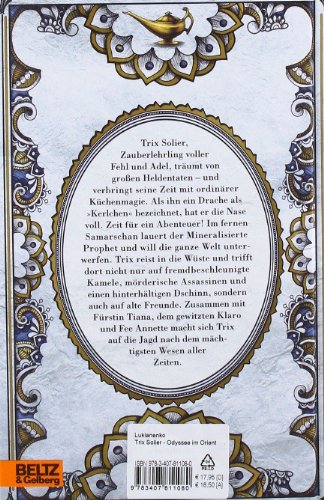 Trix Solier,
Zauberlehrling voller
Fehl und Adel, träumt von
großen Heldentaten – und
verbringt seine Zeit mit ordinärer
Küchenmagie. Als ihn ein Drache als
›Kerlchen‹ bezeichnet, hat er die Nase
voll. Zeit für ein Abenteuer! Im fernen
Samarschan lauert der Mineralisierte
Prophet und will die ganze Welt unter-
werfen. Trix reist in die Wüste und trifft
dort nicht nur auf fremdbeschleunigte
Kamele, mörderische Assassinen und
einen hinterhältigen Dschinn, sondern
auch auf alte Freunde. Zusammen mit
Fürstin Tiana, dem gewitzten Klaro
und Fee Annette macht sich Trix
auf die Jagd nach dem mäch-
tigsten Wesen aller
Zeiten.
Lukianenko
Trix Solier - Odyssee im Orient
ISBN 978-3-407-81108-0
9783407811080
€ 17,95 [D]
€ 18,50 [A]
BELTZ
& Gelberg